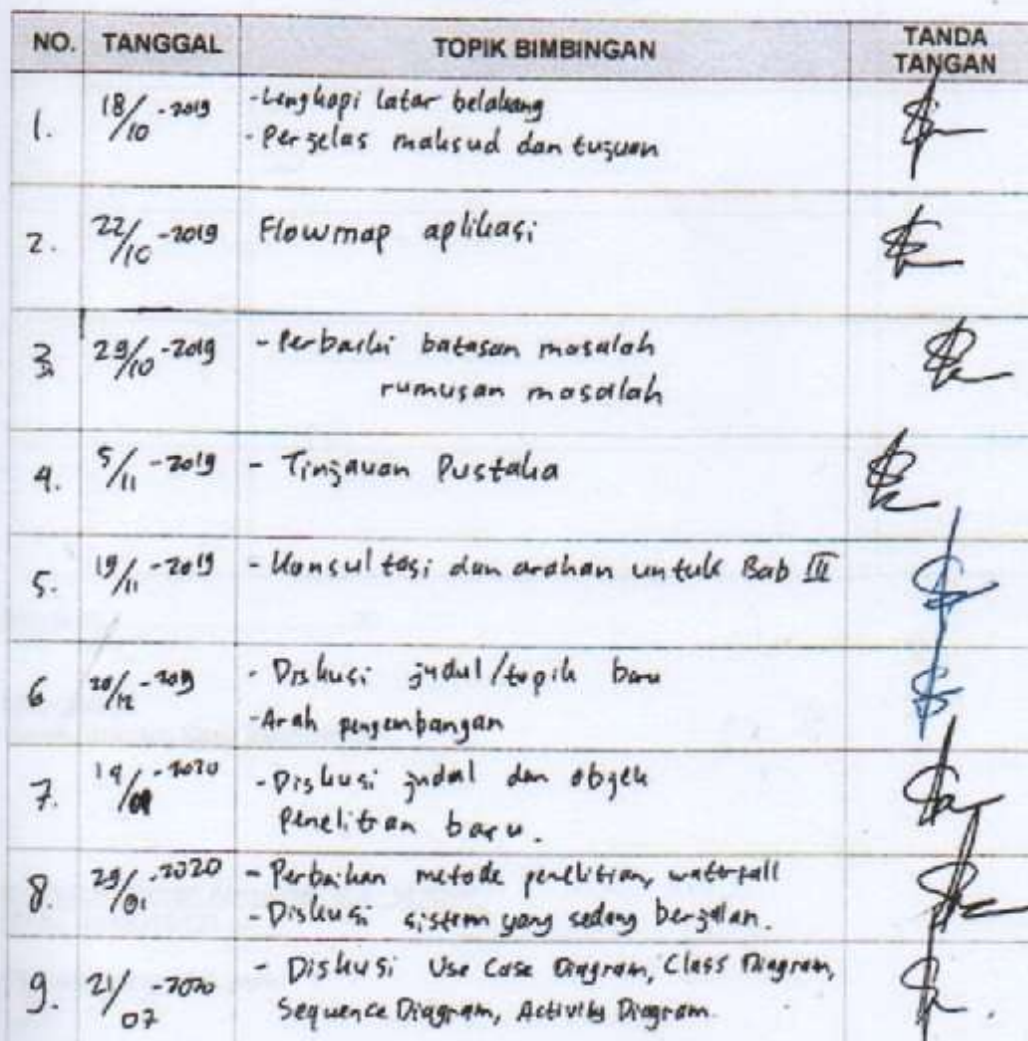 NO. TANGGAL TOPIK BIMBINGAN TANDA TANGAN
1. 18/10 -2019 -Lengkapi latar belakang
-Perjelas maksud dan tujuan
2. 22/10 -2019 Flowmap aplikasi
3. 29/10 -2019 - Perbaiki batasan masalah
rumusan masalah
4. 5/11 -2019 - Tinjauan Pustaka
5. 19/11 -2019 - Konsultasi dan arahan untuk Bab III
6 20/12 -2019 - Diskusi judul/topik baru
-Arah pengembangan
7. -2020 -Diskusi judul dan objek
penelitian baru.
8. 29/01 -2020 - Perbaikan metode penelitian, waterfall
-Diskusi sistem yang sedang berjalan.
9. 21/ -2020 - Diskusi Use Case Diagram, Class Diagram,
Sequence Diagram, Activity Diagram.